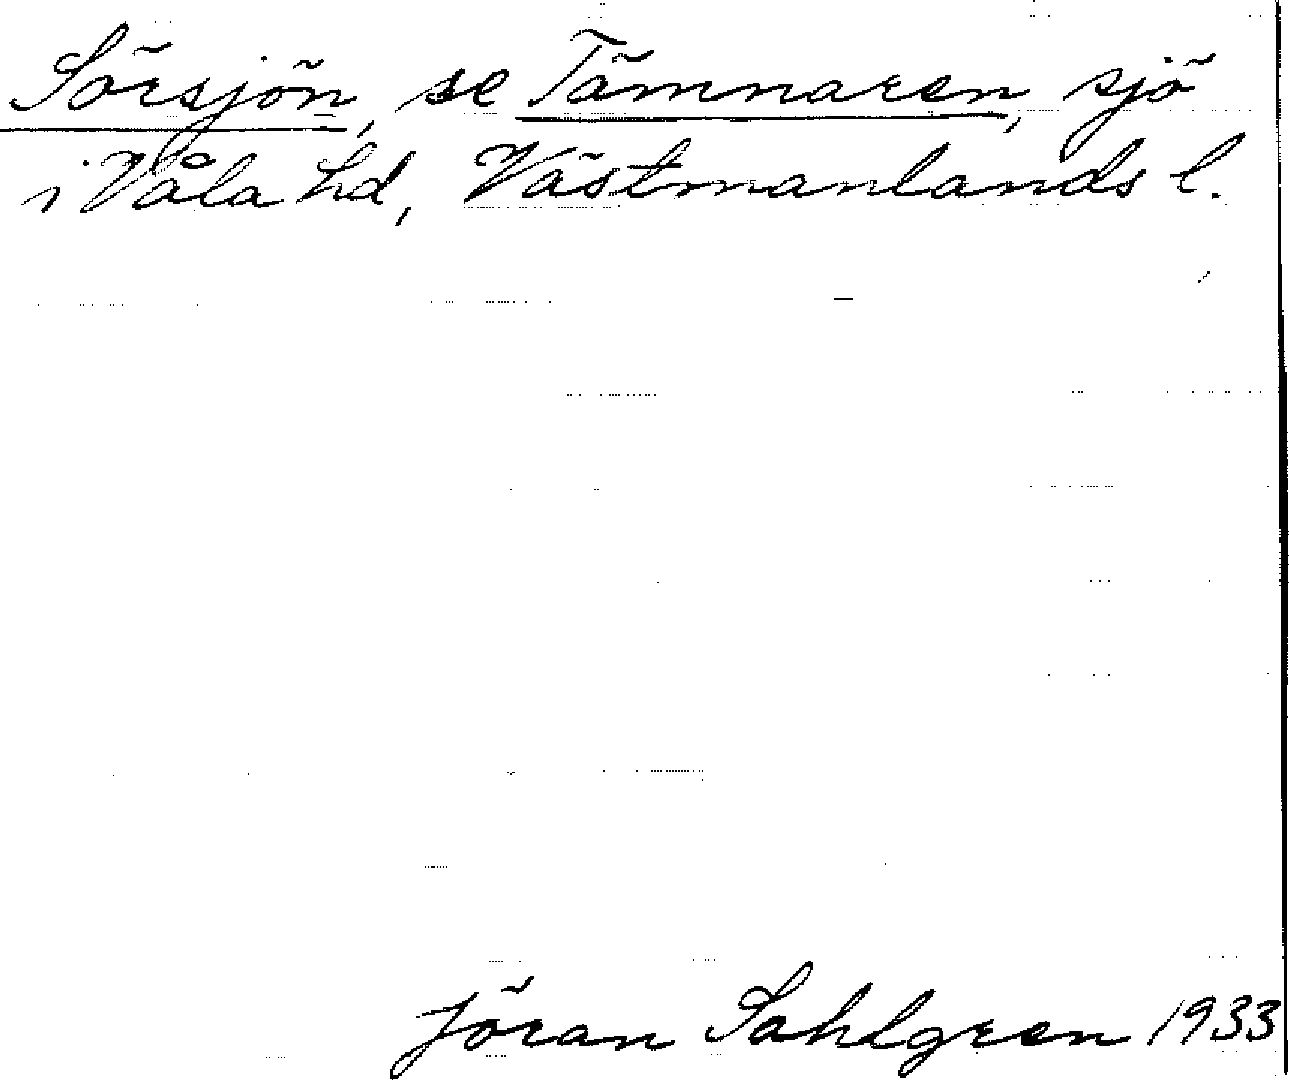 Sörsjön, se Tämnaren, sjö
i Våla hd, Västmanlands l.
Jöran Sahlgren 1933